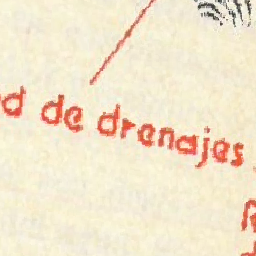 de drenajes